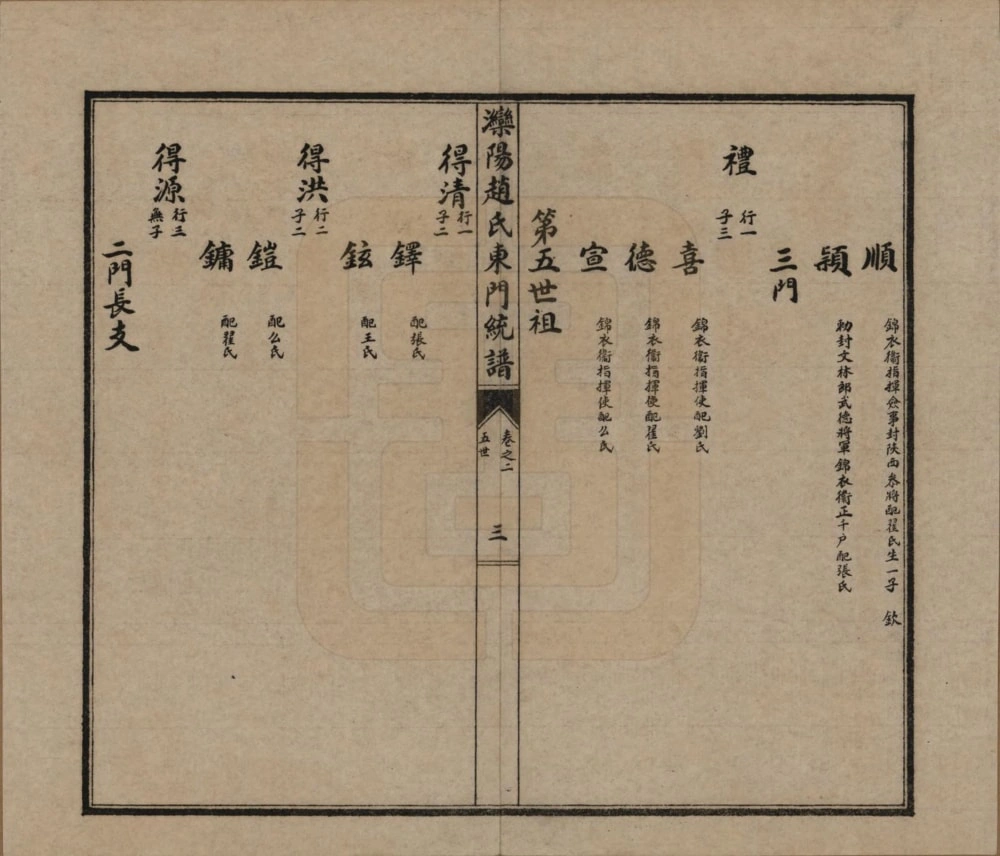 順 錦衣衞指揮僉事封陝西參將配翟氏生一子 欽
穎 勅封文林郎武德將軍錦衣衞正千户配張氏
三門
禮 行一 子三
喜 錦衣衞指揮使配劉氏
德 錦衣衞指揮使配翟氏
宣 錦衣衞指揮使配么氏
第五世祖
灤陽趙氏東門統譜 卷之二 五世 三
得清 行一 子二
鐸 配張氏
鉉 配王氏
得洪 行二 子二
鎧 配么氏
鏞 配翟氏
得源 行三 無子
二門長支